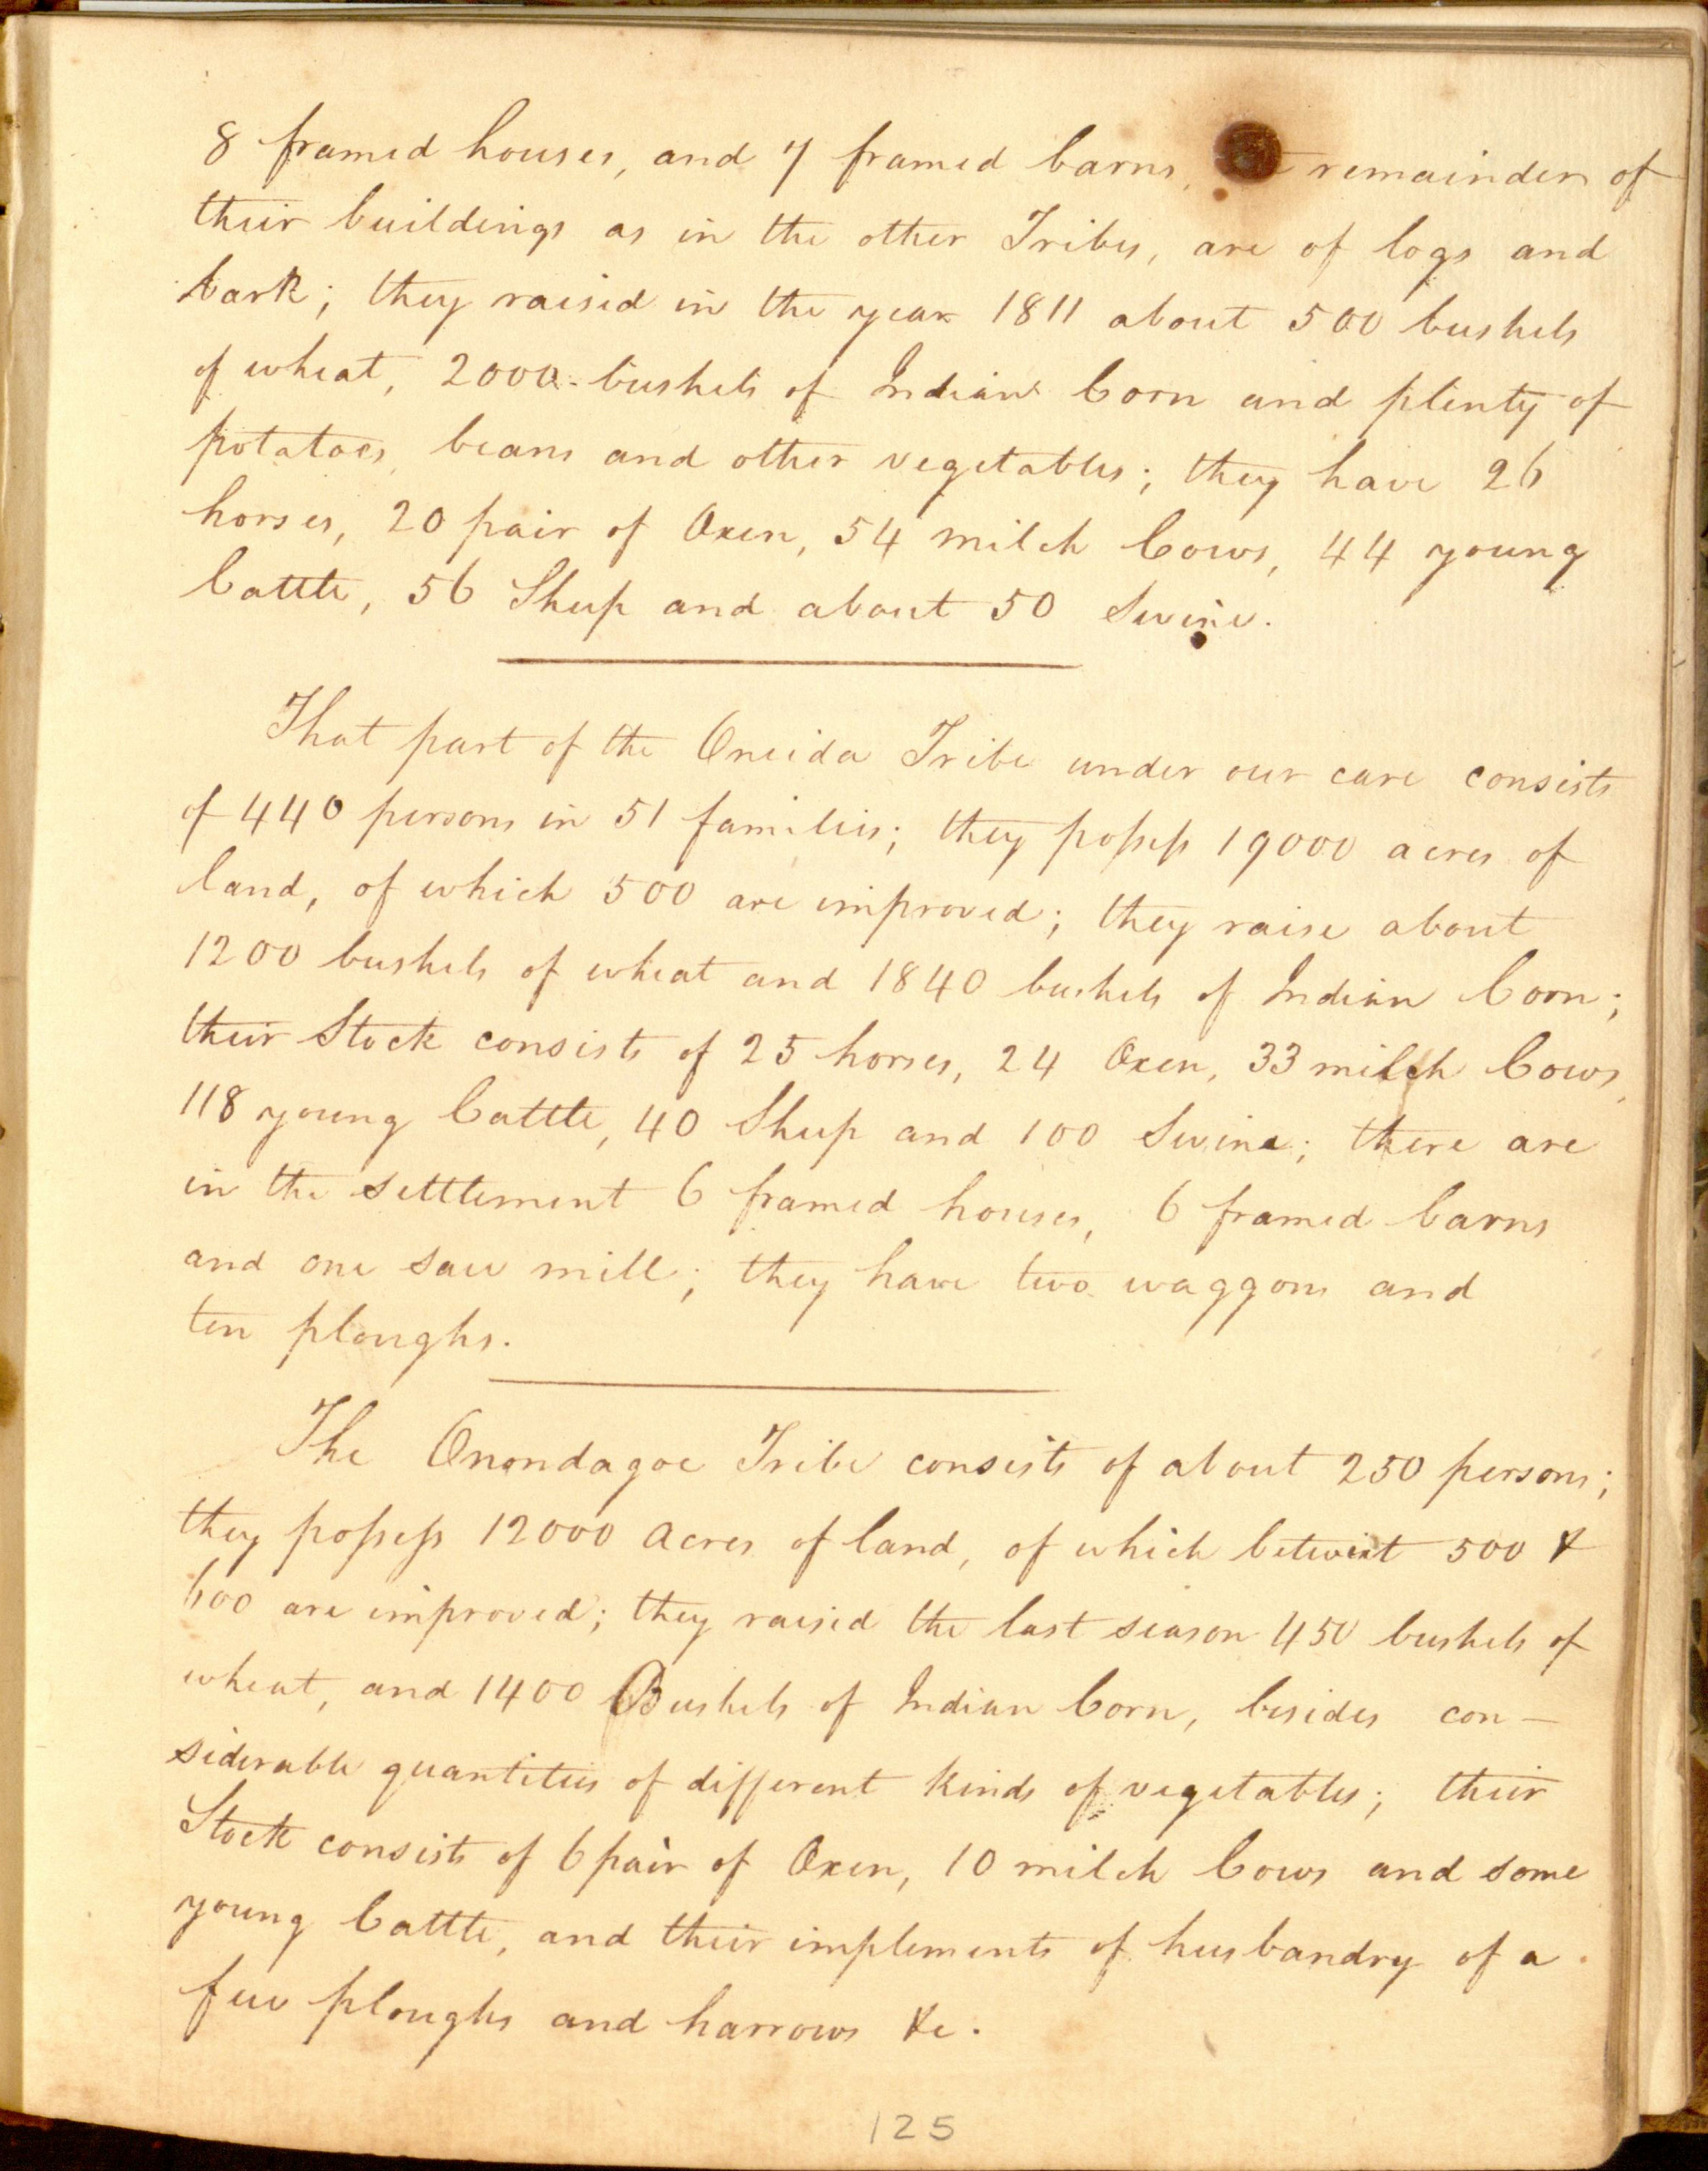 8 framed houses, and 7 framed barns, remainder of
their buildings as in the other Tribes, are of logs and
bark; they raised in the year 1811 about 500 bushels
of wheat, 2000 bushels of Indian Corn and plenty of
potatoes, beans and other vegetables; they have 26
horses, 20 pair of Oxen, 54 milch Cows, 44 young
Cattle, 56 Sheep and about 50 Swine.
That part of the Oneida Tribe under our care consists
of 440 persons in 51 families; they possess 19000 acres of
land, of which 500 are improved; they raise about
1200 bushels of wheat and 1840 bushels of Indian Corn;
their Stock consists of 25 horses, 24 Oxen, 33 milch Cows,
118 young Cattle, 40 Sheep and 100 Swine; there are
in the settlement 6 framed houses, 6 framed barns
and one saw mill; they have two waggons and
ten ploughs.
The Onondagoe Tribe consists of about 250 persons;
they possess 12000 acres of land, of which betwixt 500 &
600 are improved; they raised the last season 450 bushels of
wheat, and 1400 Bushels of Indian Corn, besides con-
siderable quantities of different kinds of vegetables; their
Stock consists of 6 pair of Oxen, 10 milch Cows and some
young Cattle, and their implements of husbandry of a
few ploughs and harrows &c.
125